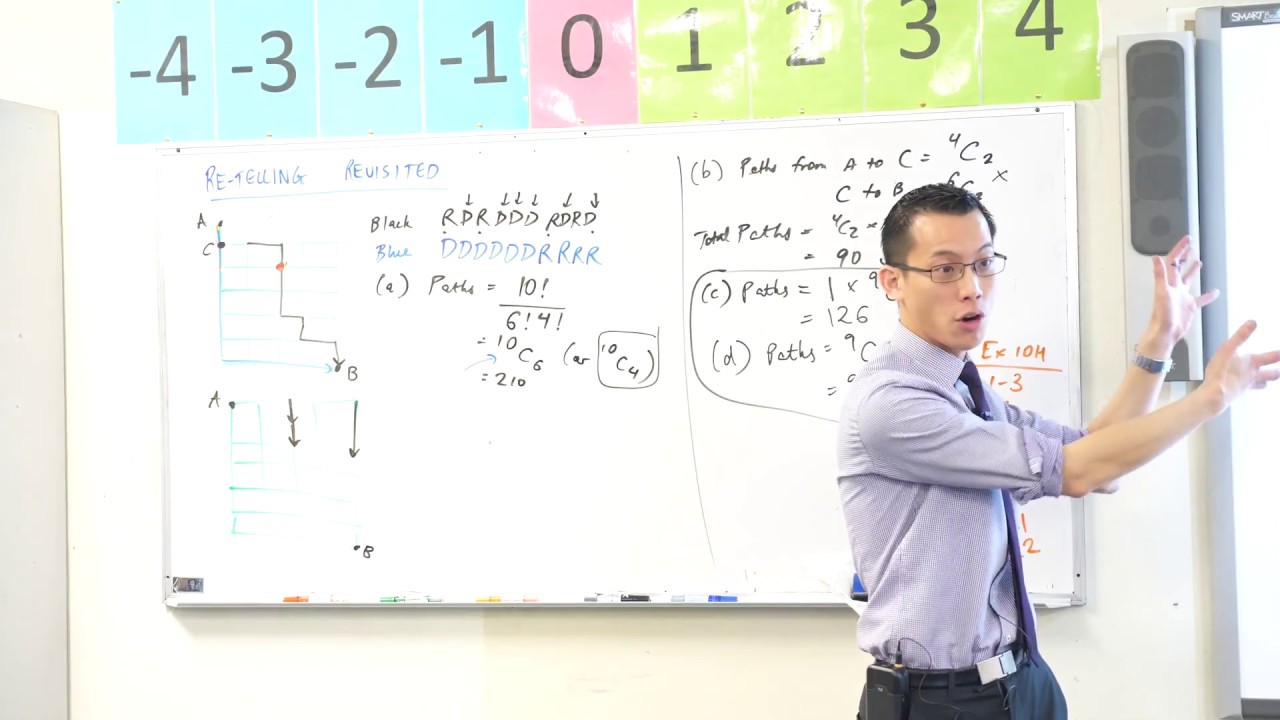 -4 -3 -2 -1 0 1 2 3 4
SMART
RE-TELLING REVISITED
A
C
B
A
B
Black RDRDDDRDRD
Blue DDDDDDRRRR
(a) Paths = 10!
6!4!
= ¹⁰C₆ (or ¹⁰C₄)
= 210
(b) Paths from A to C = ⁴C₂ ×
C to B
Total Paths = ⁴C₂ ×
= 90
(c) Paths = 1 × ⁹
= 126
(d) Paths = ⁹C
=
Ex 10H
1-3
1
2